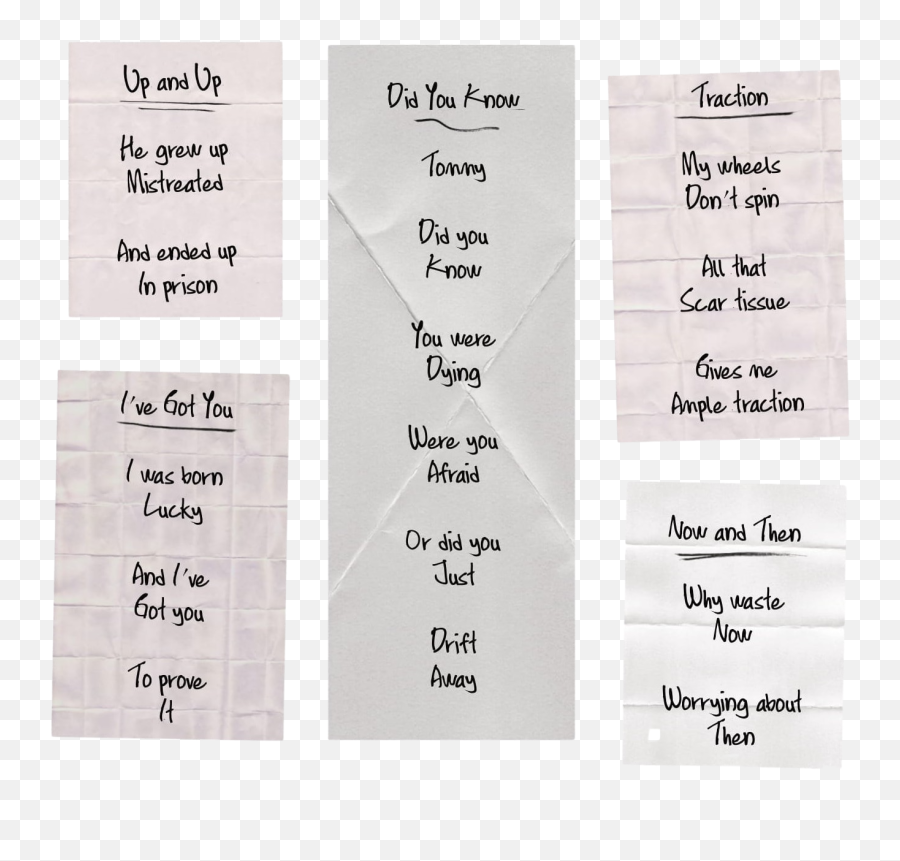 Up and Up
He grew up
Mistreated
And ended up
In prison
Did You Know
Tommy
Did you
Know
You were
Dying
Were you
Afraid
Or did you
Just
Drift
Away
Traction
My wheels
Don't spin
All that
Scar tissue
Gives me
Ample traction
I've Got You
I was born
Lucky
And I've
Got you
To prove
It
Now and Then
Why waste
Now
Worrying about
Then